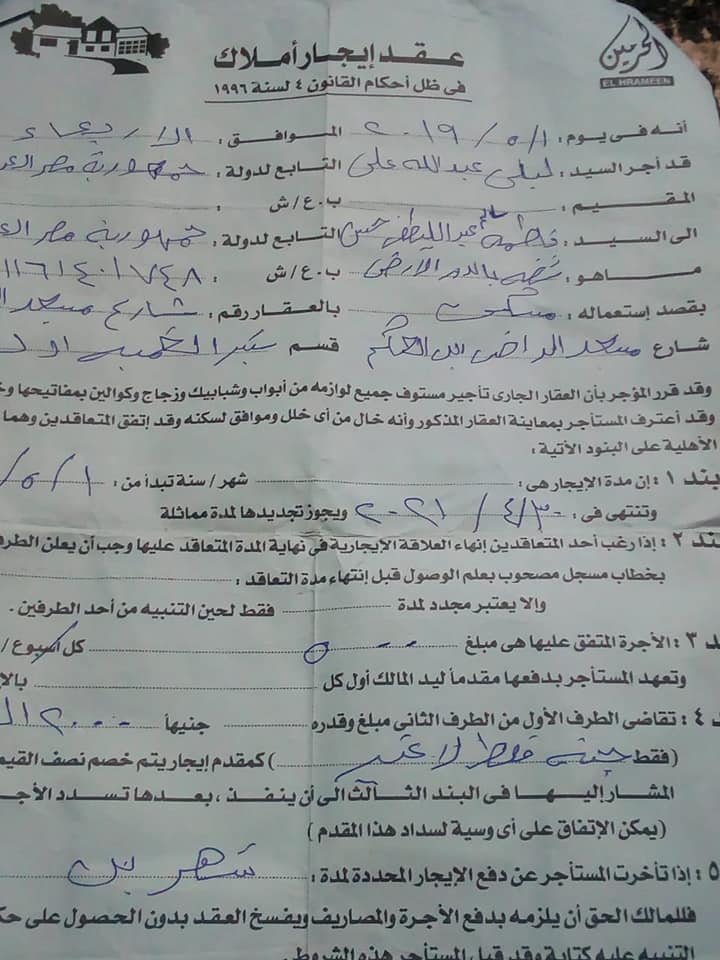 الحرمين
EL HRAMEEN
عقد إيجار أملاك
فى ظل أحكام القانون ٤ لسنة ١٩٩٦
أنه فى يوم : ٢٠١٩/٥/١ الموافق : الاربعاء
قد أجر السيد : ليلى عبدالله على التابع لدولة : جمهورية مصر العر
المقيم : ب.ع/ش
الى السيد : فاطمة عبداللطيف حسن التابع لدولة : جمهورية مصر الع
ماهو : شقه بالدور الارضى ب.ع/ش :
بقصد إستعماله : سكن بالعقار رقم : شارع مسجد ال
شارع مسجد الراضى ابن الحكم قسم شبرا الخيمه اول
وقد قرر المؤجر بأن العقار الجارى تأجير مستوف جميع لوازمه من أبواب وشبابيك وزجاج وكوالين بمفاتيحها وخ
وقد أعترف المستأجر بمعاينة العقار المذكور وأنه خال من أى خلل وموافق لسكنه وقد إتفق المتعاقدين وهما
الأهلية على البنود الأتية :
بند ١ : إن مدة الإيجار هى : شهر / سنة تبدأ من : ٥/١/
وتنتهى فى : ٢٠٢١/٤/٣٠ ويجوز تجديدها لمدة مماثلة
بند ٢ : إذا رغب أحد المتعاقدين إنهاء العلاقة الإيجارية فى نهاية المدة المتعاقد عليها وجب أن يعلن الطرف
بخطاب مسجل مصحوب بعلم الوصول قبل إنتهاء مدة التعاقد :
وإلا يعتبر مجدد لمدة فقط لحين التنبيه من أحد الطرفين .
د ٣ : الأجرة المتفق عليها هى مبلغ ٥٠٠ كل أسبوع /
وتعهد المستأجر بدفعها مقدماً ليد المالك أول كل بالإ
د ٤ : تقاضى الطرف الأول من الطرف الثانى مبلغ وقدره جنيهاً ٢٠٠٠
(فقط جنيه فقط لا غير ) كمقدم إيجار يتم خصم نصف القيم
المشار إليها فى البند الثالث الى أن ينفذ ، بعدها تسدد الأجـ
(يمكن الإتفاق على أى وسية لسداد هذا المقدم )
٥ : إذا تأخرت المستأجر عن دفع الإيجار المحددة لمدة : شهرين
فللمالك الحق أن يلزمه بدفع الأجرة والمصاريف ويفسخ العقد بدون الحصول على حك
التنبيه عليه كتابة وقد قبل المستأجر هذه الشروط .